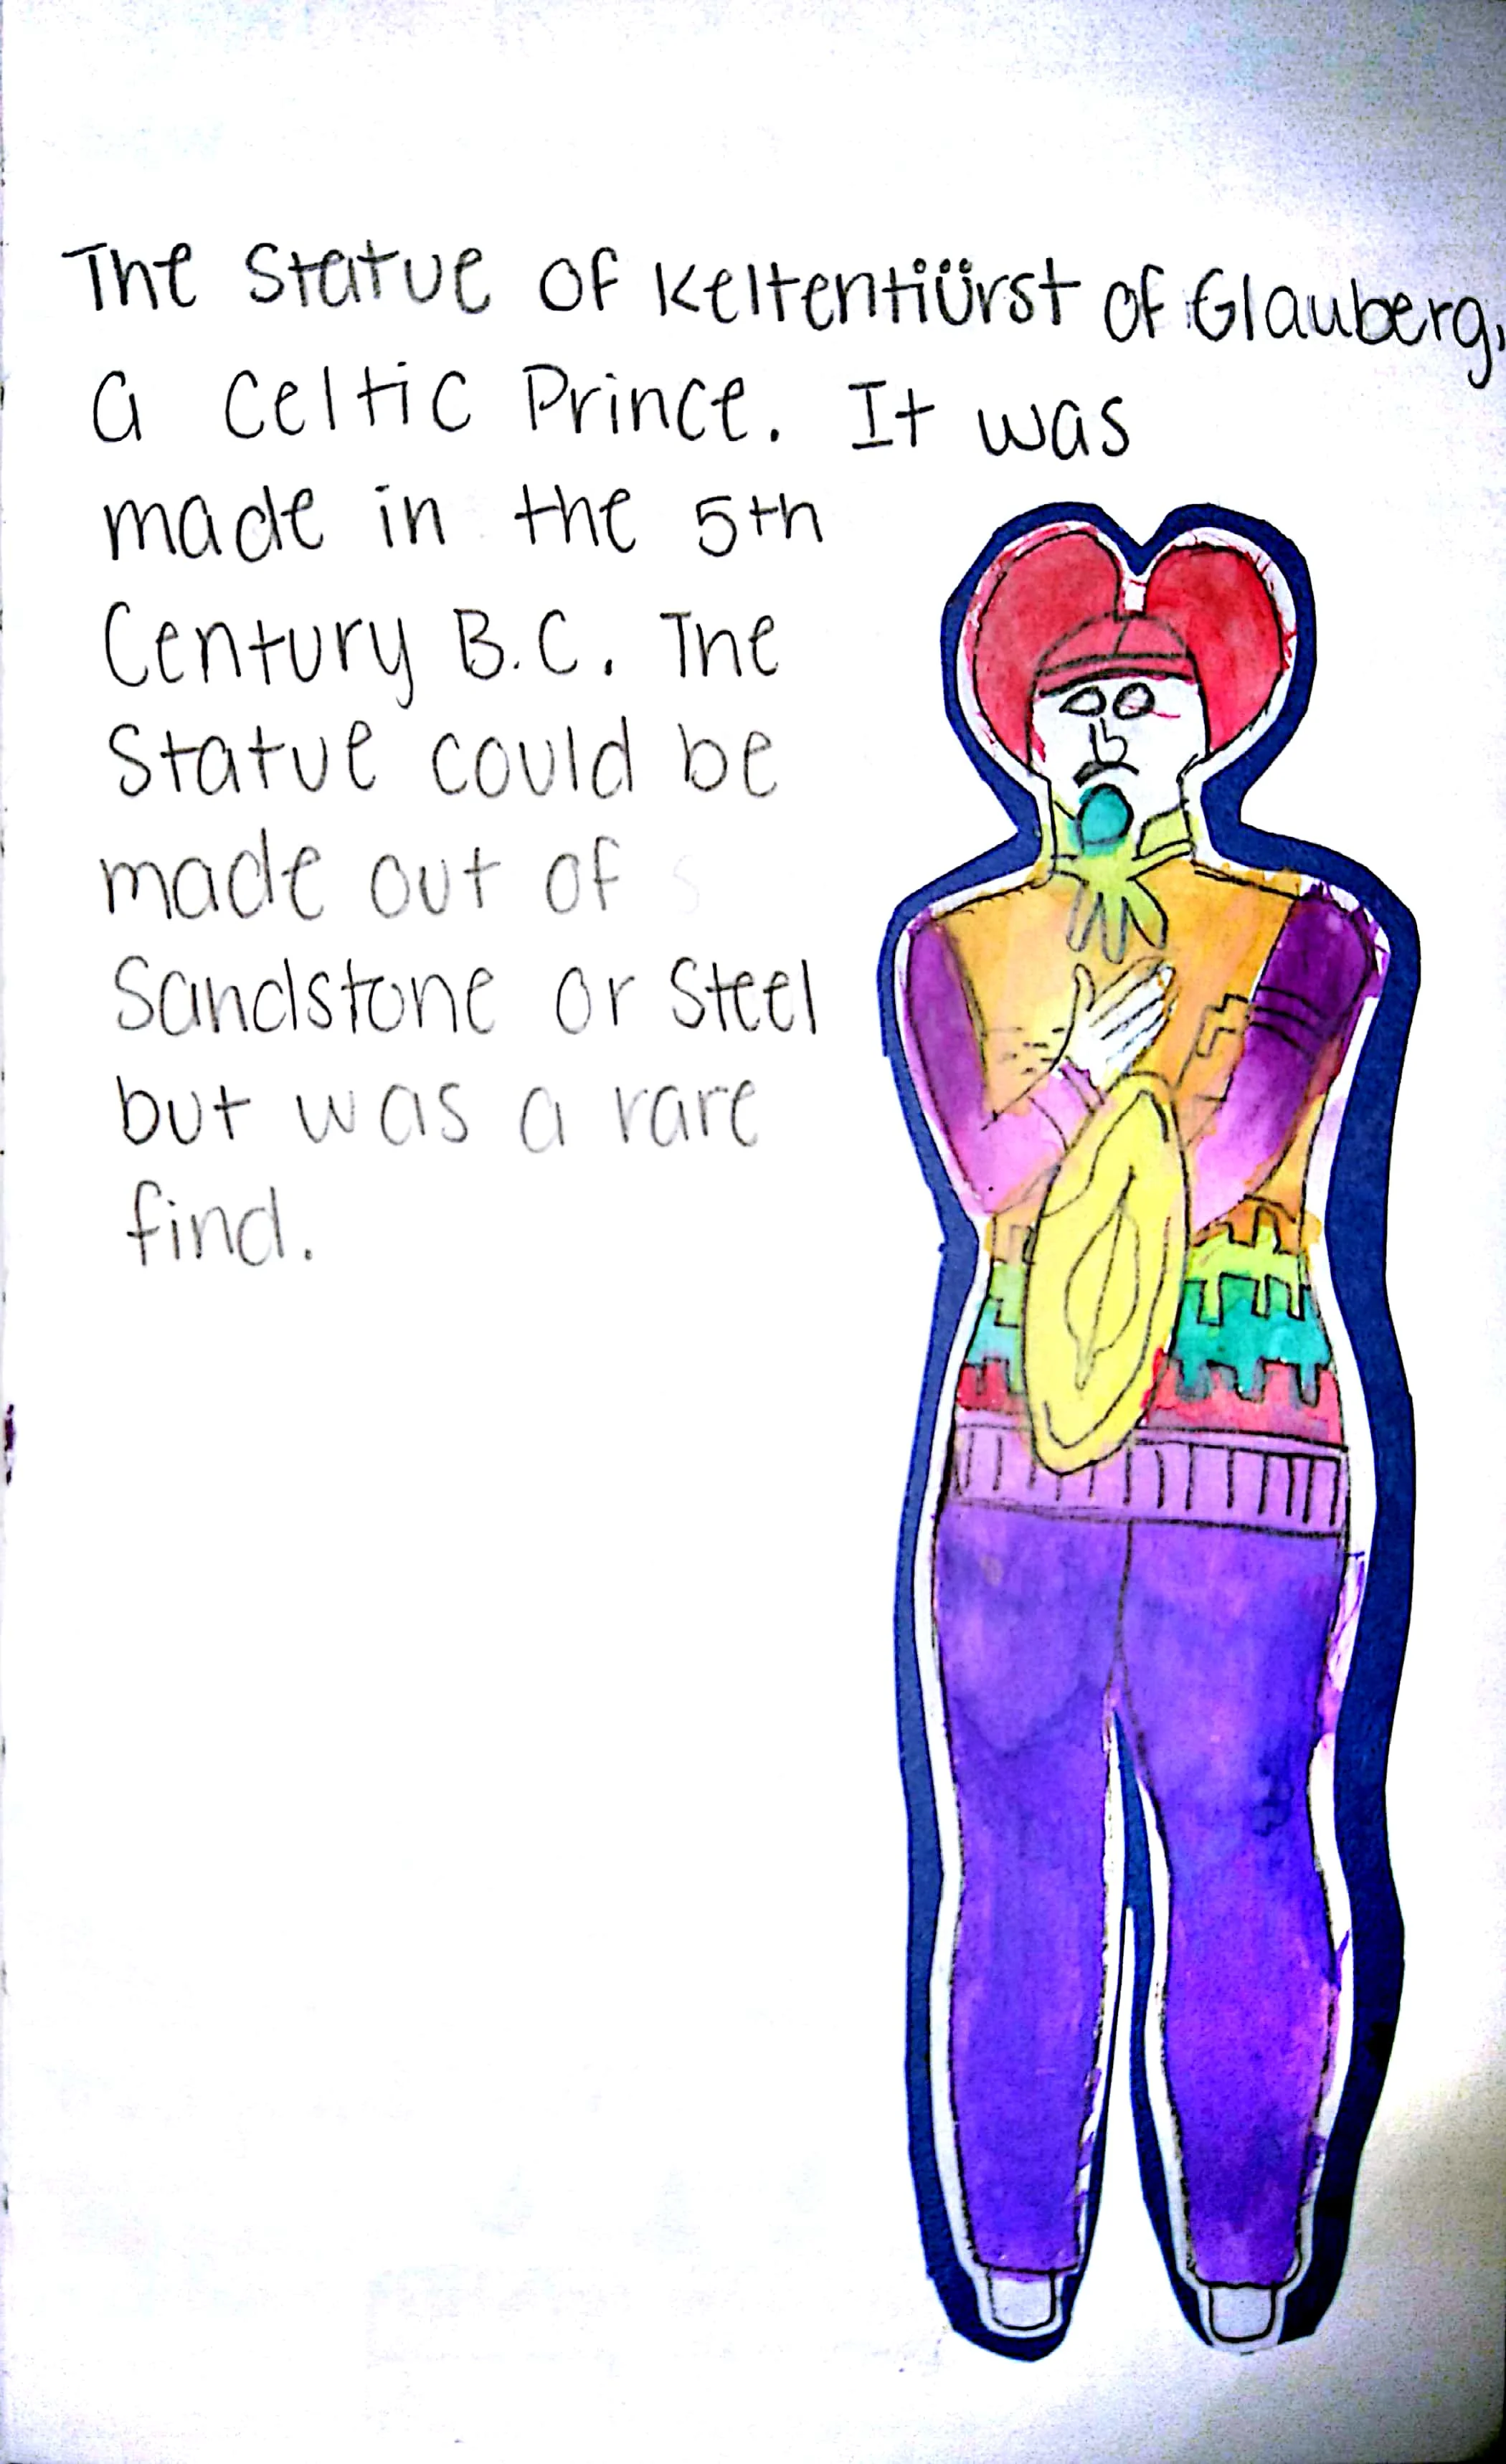 The Statue of Keltentiürst of Glauberg,
a Celtic Prince. It was
made in the 5th
Century B.C. The
Statue could be
made out of
Sandstone or Steel
but was a rare
find.